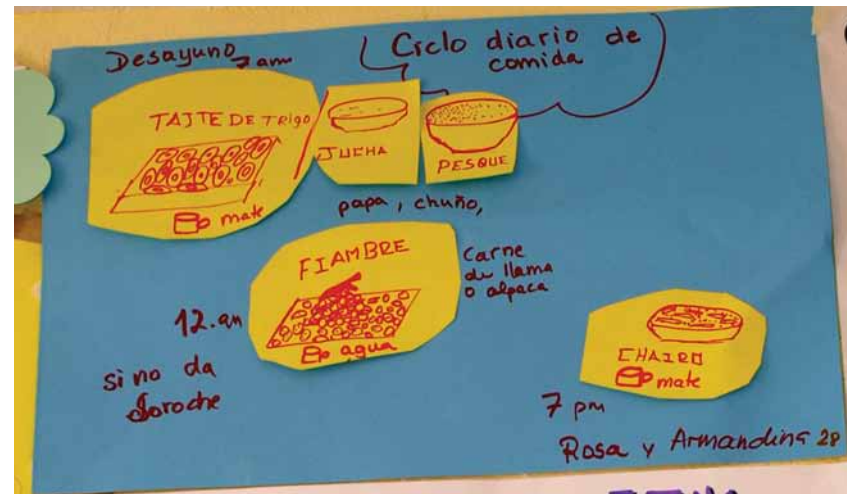 Desayuno
7 am
Ciclo diario de
comida
TAJTE DE TRIGO
mate
JUCHA
PESQUE
papa, chuño,
FIAMBRE
agua
Carne
de llama
o alpaca
12.am
si no da
Soroche
CHAIRO
mate
7 pm
Rosa y Armandina 28